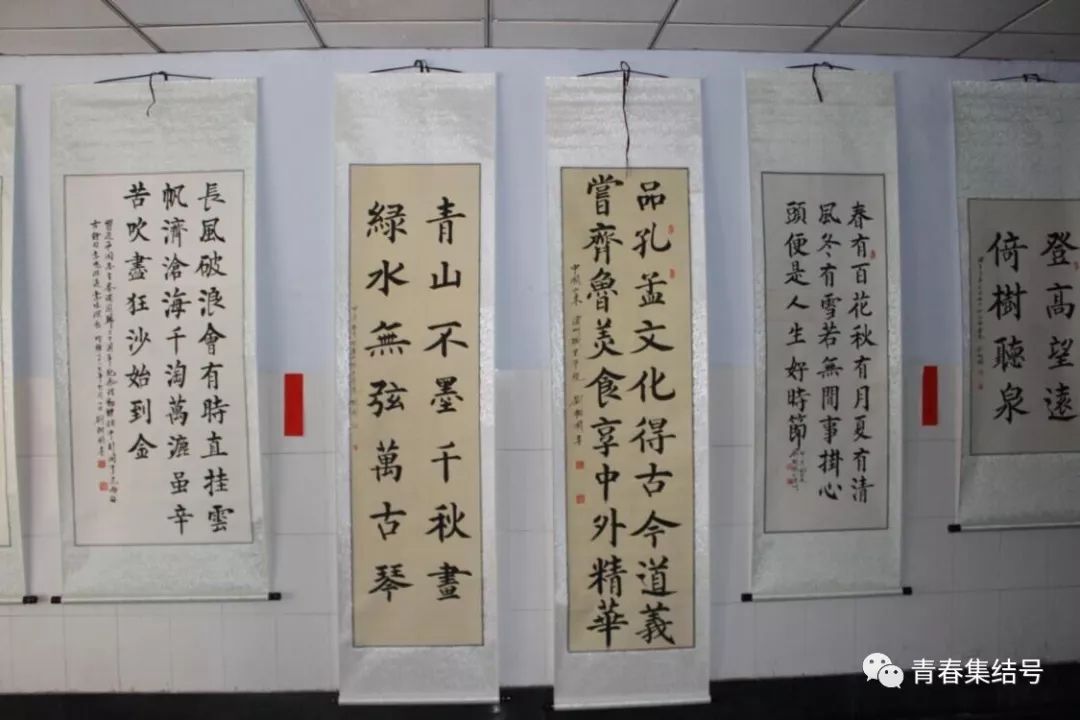 長風破浪會有時直挂雲
帆濟滄海千淘萬漉虽辛
苦吹盡狂沙始到金
青山不墨千秋畫
緑水無弦萬古琴
品孔孟文化得古今道義
嘗齊魯美食享中外精華
中國山東
春有百花秋有月夏有清
風冬有雪若無閒事掛心
頭便是人生好時節
登高望遠
倚樹聽泉
青春集结号